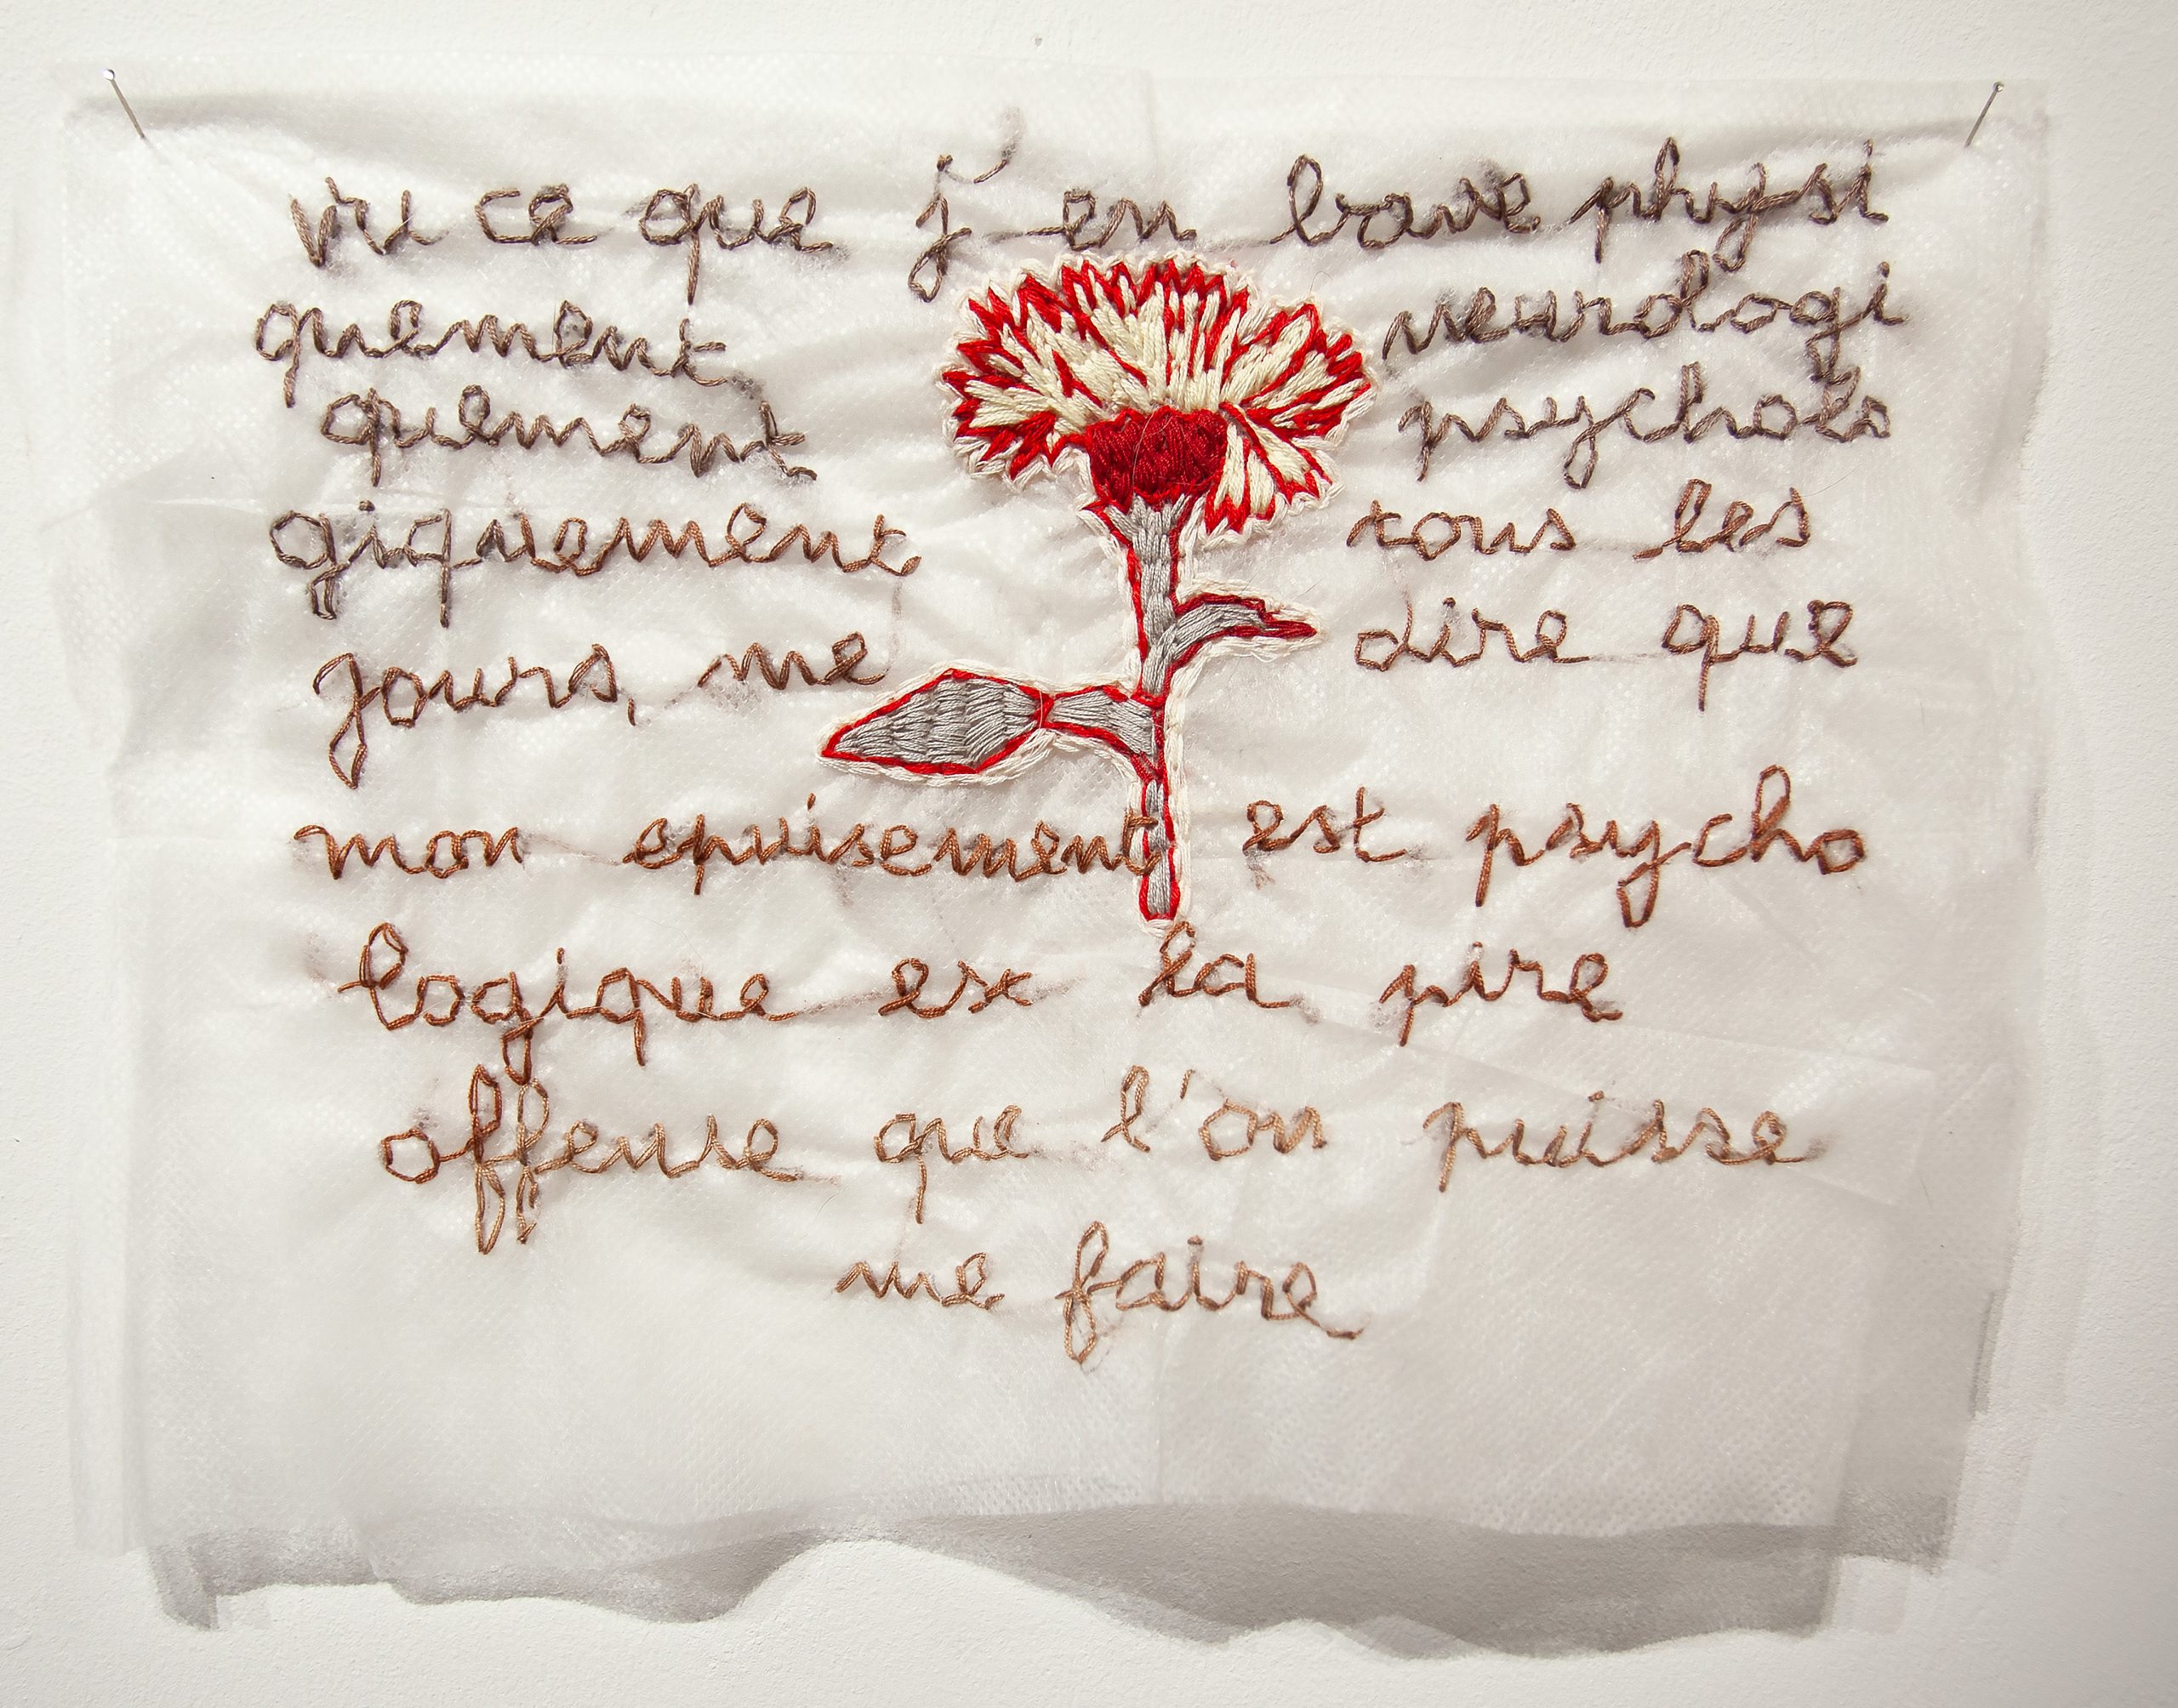 vu ce que j'en bave physi
quement neurologi
quement psycholo
giquement tous les
jours, me dire que
mon epuisement est psycho
logique est la pire
offense que l'on puisse
me faire